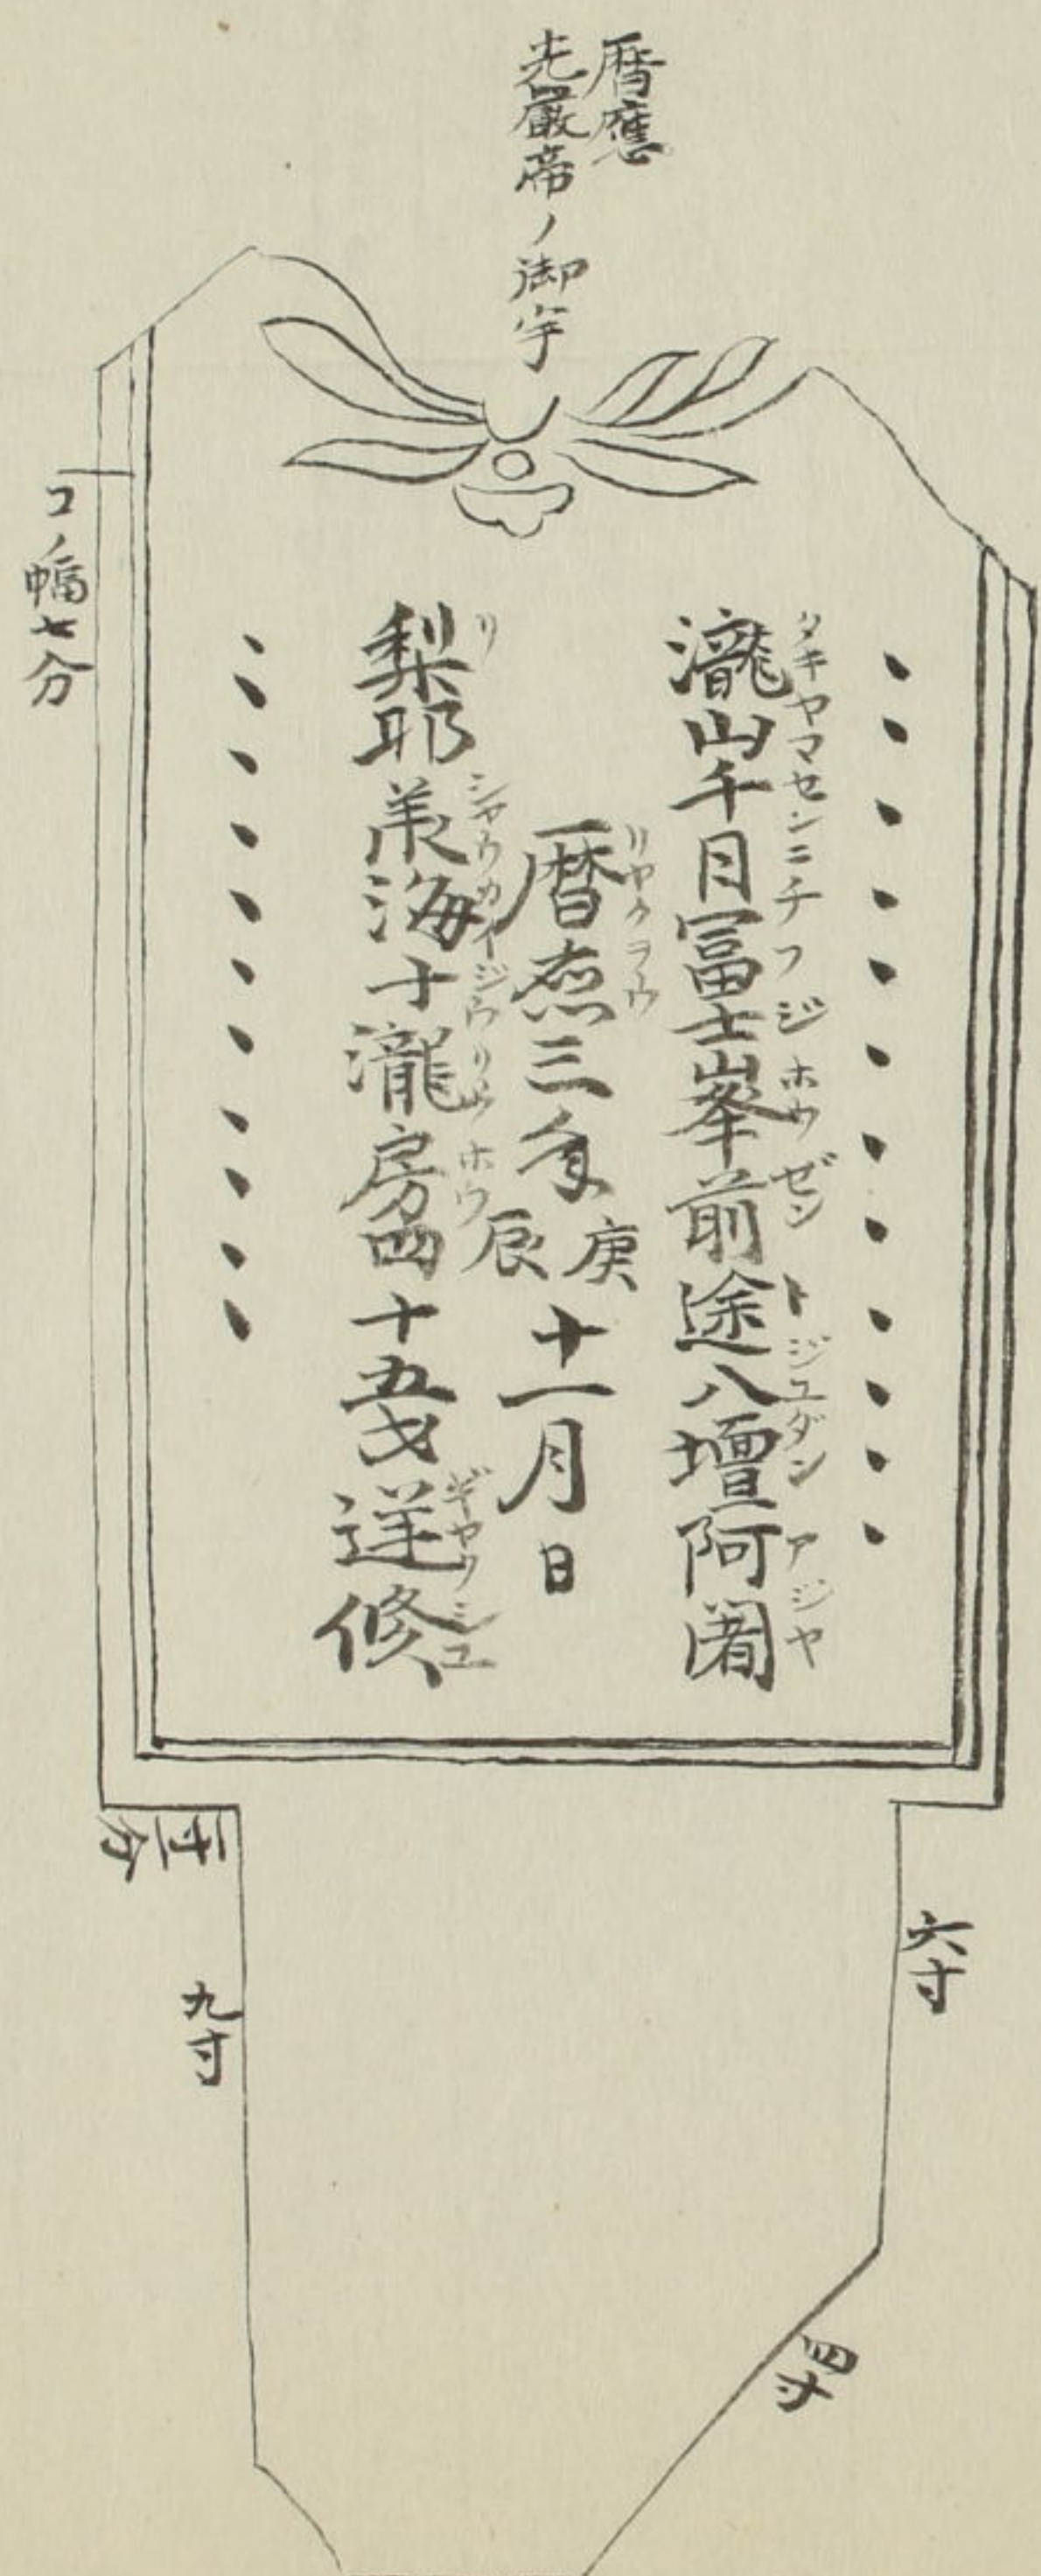 暦應
光嚴帝ノ御宇
コノ幅七分
瀧山千日冨士峯前途八壇阿闍
タキヤマセンニチフジホウゼントジユダンアジヤ
暦應三年庚辰十一月日
リヤクヲウ
梨耶羕海十瀧房四十五才逆修
リシヤウカイジウリウホウギヤクシユ
一寸二分
六寸
九寸
四寸